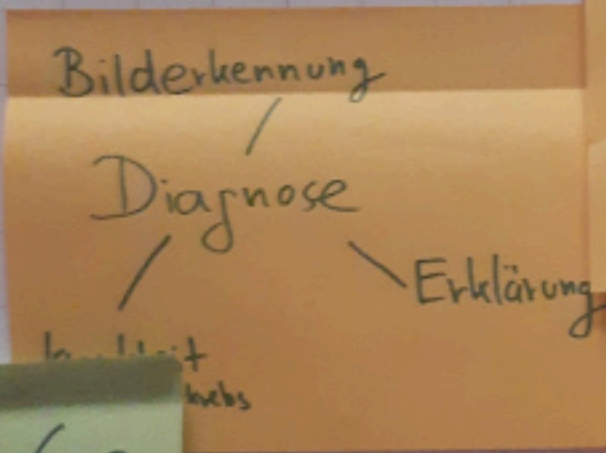 Bilderkennung
Diagnose
Erklärung
krebs